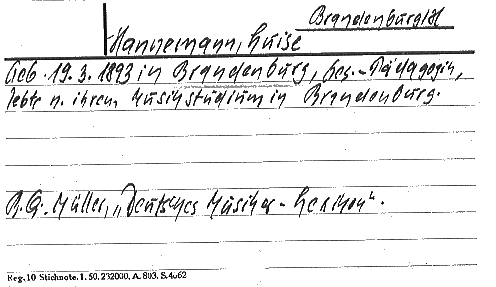 Brandenburg/H.
Hannemann, Luise
Geb. 19.3.1893 in Brandenburg, Ges.-Pädagogin,
lebte n. ihrem Musikstudium in Brandenburg.
Müller, „Deutsches Musiker-Lexikon".
Reg. 10 Stichnote. 1. 50. 232000. A. 803. S. 4062